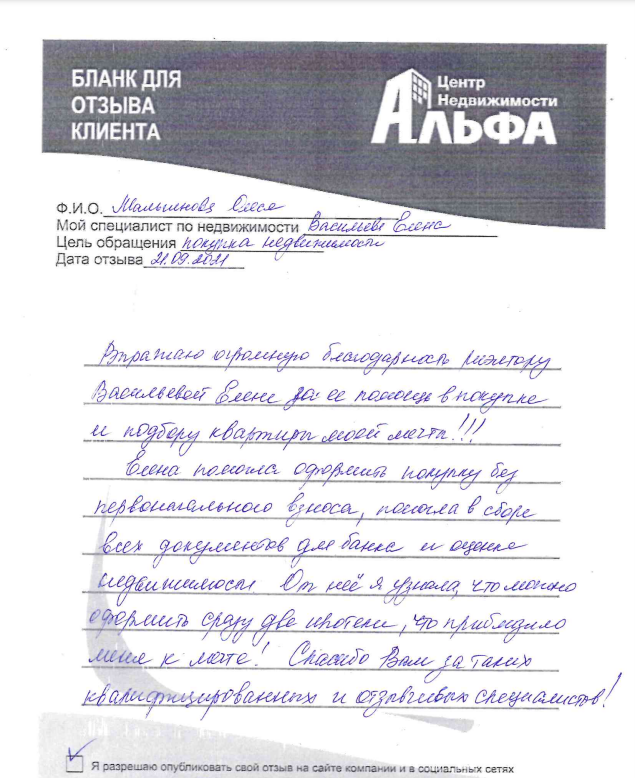 БЛАНК ДЛЯ
ОТЗЫВА
КЛИЕНТА
Центр
Недвижимости
АЛЬФА
Ф.И.О. Малышнова Олеся
Мой специалист по недвижимости Васильева Елена
Цель обращения покупка недвижимости
Дата отзыва 21.09.2021
Выражаю огромную благодарность риэлтору
Васильевой Елене за ее помощь в покупке
и подбору квартиры моей мечты!!!
Елена помогла оформить покупку без
первоначального взноса, помогла в сборе
всех документов для банка и оценке
недвижимости. От неё я узнала, что можно
оформить сразу две ипотеки, что приблизило
меня к мечте! Спасибо Вам за таких
квалифицированных и отзывчивых специалистов!
Я разрешаю опубликовать свой отзыв на сайте компании и в социальных сетях